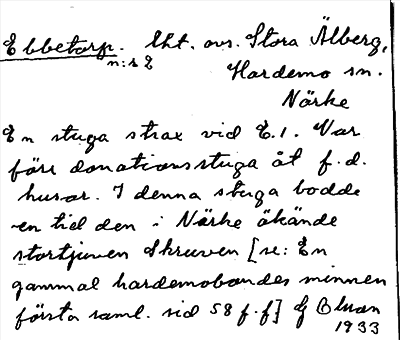 Ebbetorp. lht. avs. Stora Älberg,
n:r 2 Hardemo sn.
Närke
En stuga strax vid E.1. Var
förr donationsstuga åt f.d.
husar. I denna stuga bodde
en tid den i Närke ökände
stortjuven Skruven [se: En
gammal hardemobondes minnen
första saml. sid 58 f.f]
1933